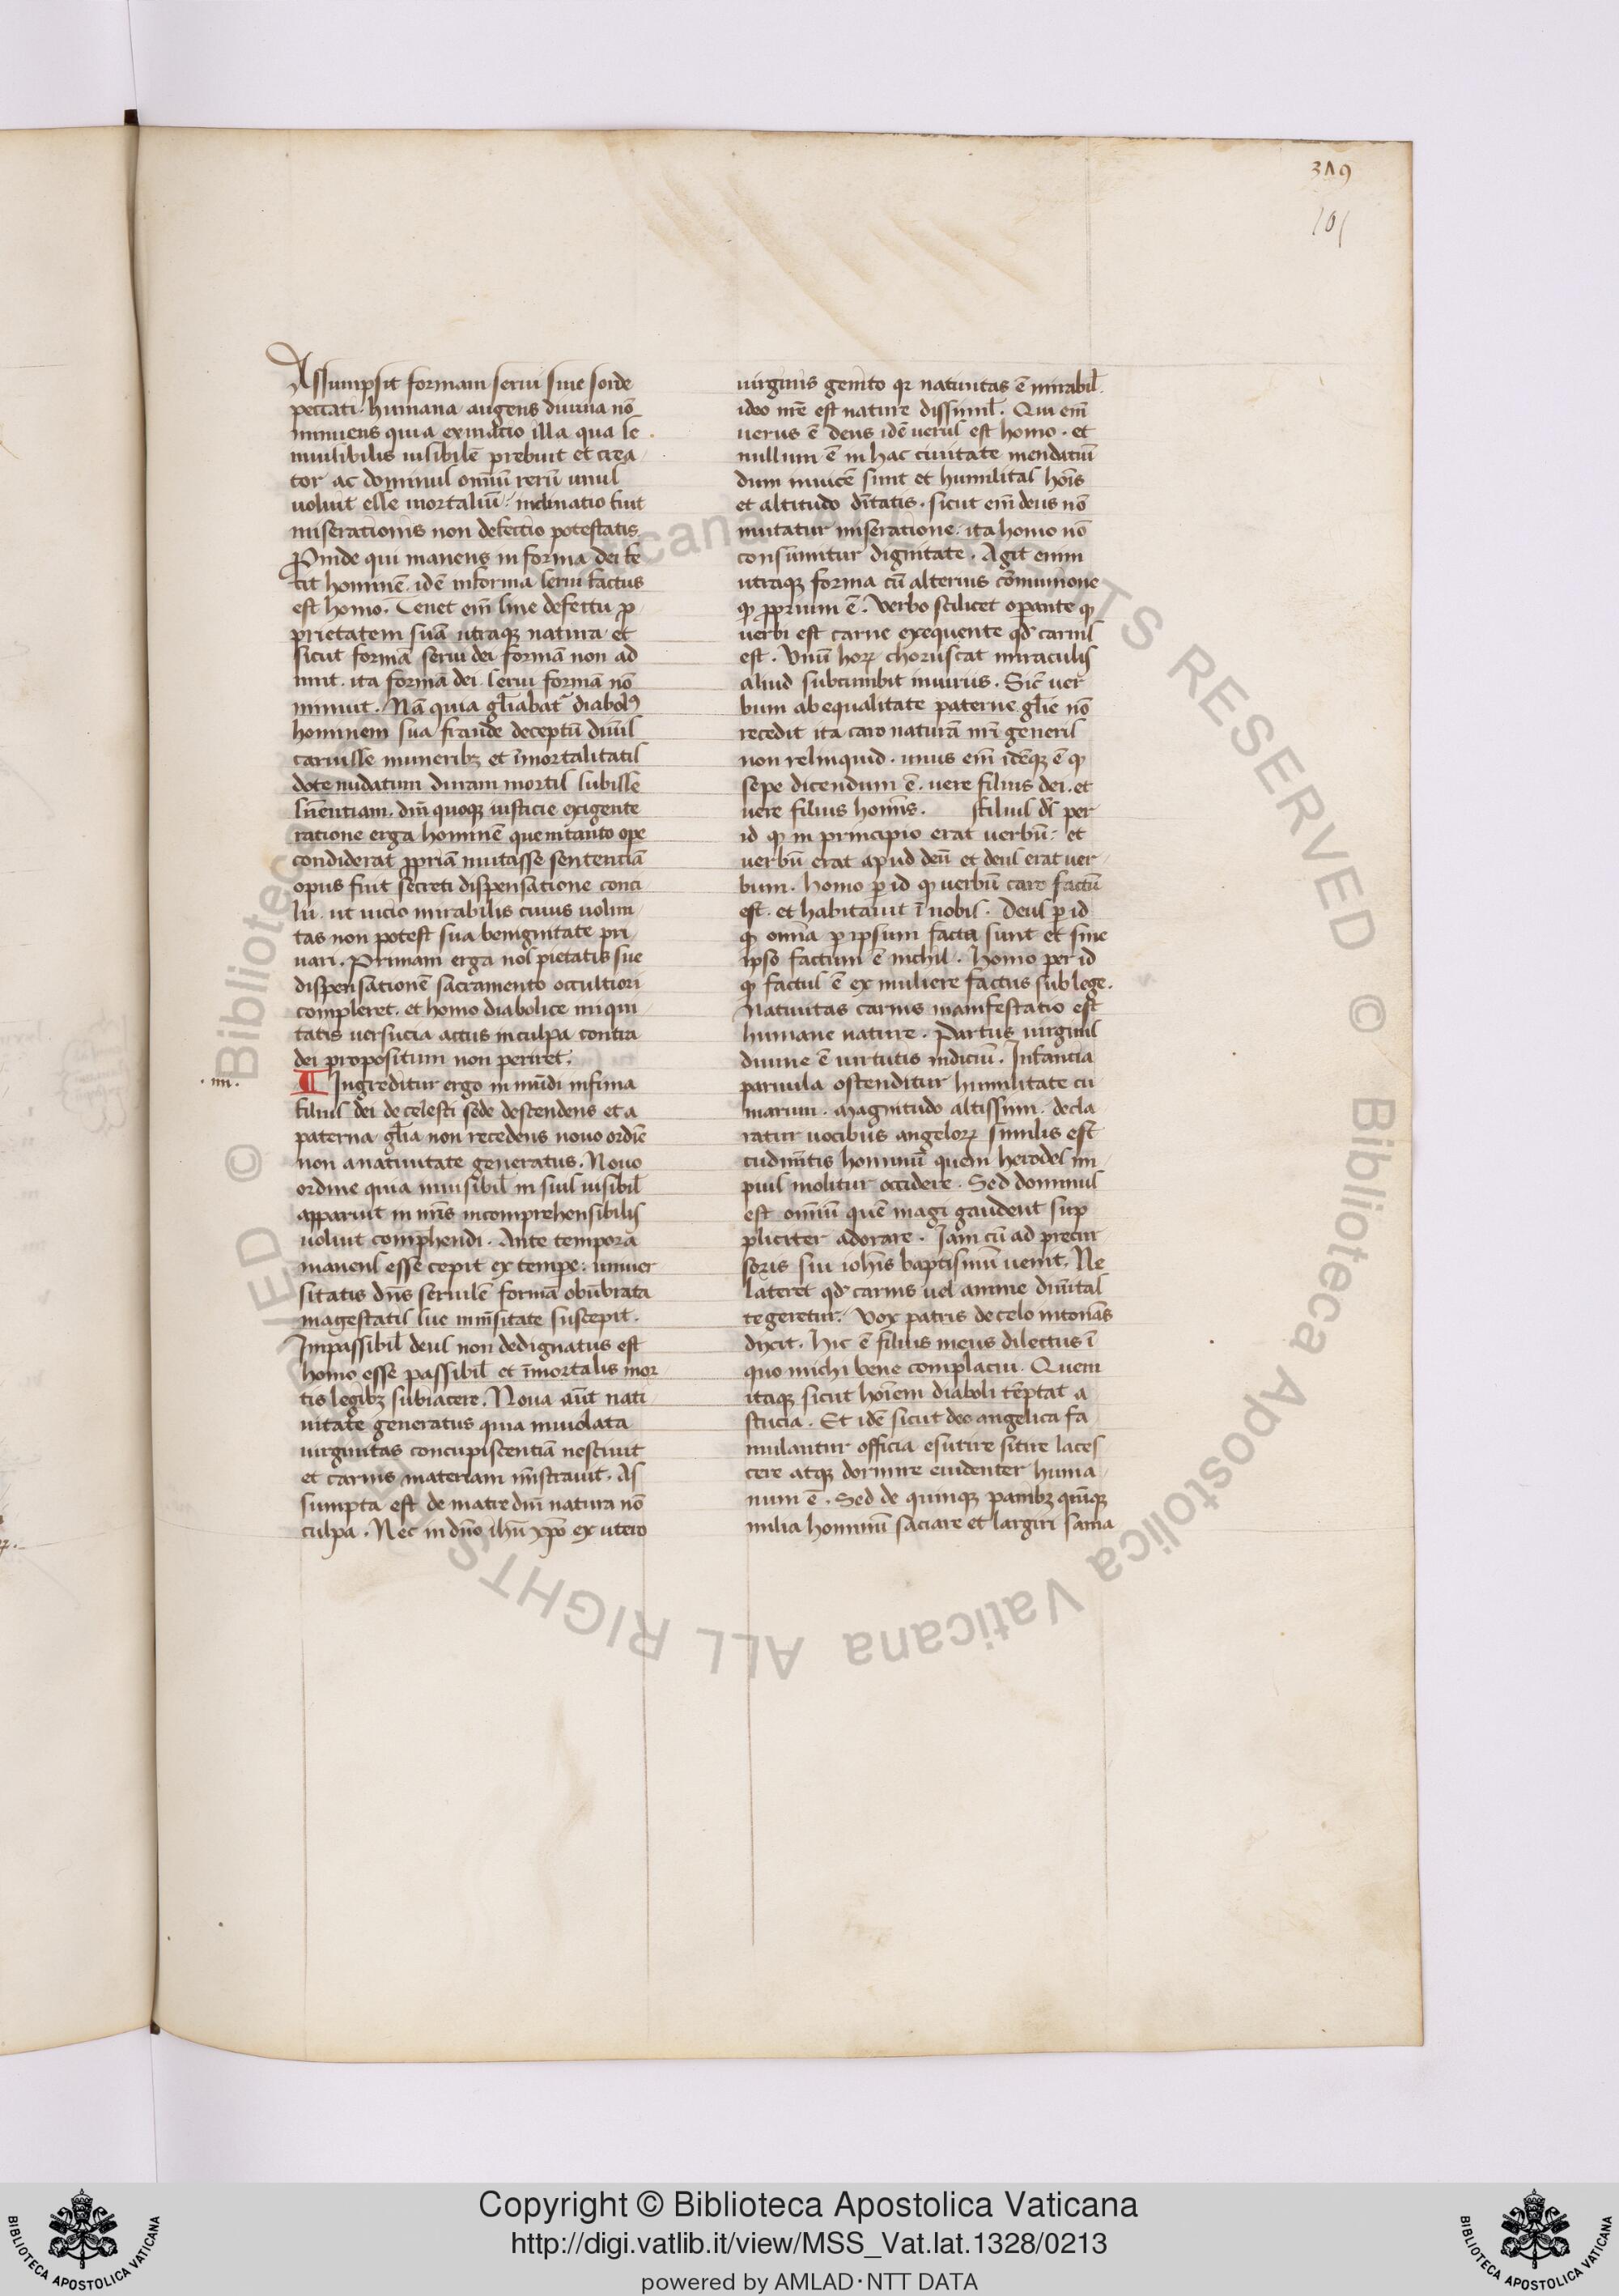 319
101
Assumpsit formam serui sine sorde
peccati. humana augens diuina nō
minuens quia exinātio illa qua se
inuisibilis uisibilē prebuit et crea
tor ac dominus omniū rerū unus
uoluit esse mortaliū. inclinatio fuit
miserationis non defectio potestatis
Proinde qui manens in forma dei fe
cit hominē. idē in forma serui factus
est homo. Tenet em̄ sine defectu ꝓ
prietatem suā utraqꝫ natura et
sicut formā serui dei formā non ad
imit. ita formā dei serui formā nō
minuit. Nā quia gl̄iabat᷑ diabolꝰ
hominem sua fraude deceptū diuis
caruisse muneribꝫ et īmortalitatis
dote nudatum duram mortis subisse
sn̄entiam. dm̄ quoqꝫ iusticie exigente
ratione erga hominē quem tanto ope
condiderat ꝓpriā mutasse sententiā
opus fuit secreti dispensatione consi
lii. ut incōmirabilis cuius uolun
tas non potest sua benignitate pri
uari. Primam erga nos pietatis sue
dispensationē sacramento occultiori
compleret. et homo diabolice iniqui
tatis uersucia actus in culpa contra
dei propositum non periret.
.iiii.
¶ Ingreditur ergo in mūdi infima
filius dei de celesti sede descendens et a
paterna gl̄ia non recedens nouo ordīe
non a natiuitate generatus. Nouo
ordine quia inuisibil̄ in suis uisibil̄
apparuit in nr̄is incomprehensibilis
uoluit comp̄hendi. Ante tempora
manens esse cepit ex tempe. uniuer
sitatis dn̄s seruilē formā obūbrata
magestatis sue inmēsitate suscepit.
Inpassibil̄ deus non dedignatus est
homo esse passibil̄ et īmortalis mor
tis legibꝫ subiacere. Noua aūt nati
uitate generatus quia inuiolata
uirginitas concupiscentiā nesciuit
et carnis materiam mīstrauit. As
sumpta est de matre dn̄i natura nō
culpa. Nec in dn̄o ih̄u xp̄o ex utero
uirginis genito qꝛ natiuitas ē mirabil̄.
ideo nr̄e est nature dissimil̄. Qui em̄
uerus ē deus idē uerus est homo. et
nullum ē in hac unitate mendatiū
dum inuicē sunt et humilitas hoīs
et altitudo dītatis. sicut em̄ deus nō
mutatur miseratione. ita homo nō
consumitur dignitate. Agit enim
utraqꝫ forma cū alterius cōmunione
ꝙ ꝓprium ē. Verbo scilicet operante ꝙ
uerbi est carne exequente qd̄ carnis
est. Vnū hoꝝ choruscat miraculis
aliud subcumbit iniuriis. Sic̄ uer
bum ab equalitate paterne gl̄ie nō
recedit ita caro naturā nr̄i generis
non relinquid. unus em̄ idēqꝫ ē ꝙ
sepe dicendum ē. uere filius dei. et
uere filius hominis. filius ds̄ per
id ꝙ in principio erat uerbū. et
uerbū erat apud deū et deus erat uer
bum. homo p id ꝙ uerbū caro factū
est. et habitauit ī nobis. Deus p id
ꝙ omīa p ipsum facta sunt et sine
ipso factum ē nichil. Homo per id
ꝙ factus ē ex muliere factus sub lege.
Natiuitas carnis manifestatio est
humane nature. Partus uirginis
diuine ē uirtutis indiciū. Infancia
paruula ostenditur humilitate cu
narum. Magnitudo altissimi. decla
ratur uocibus angeloꝝ similis est
rudimētis hominū quem herodes im
pius molitur occidere. Sed dominus
est omniū quē magi gaudent sup
pliciter adorare. Iam cū ad precur
soris sui ioh̄is baptismū uenit. Ne
lateret qd̄ carnis uel amine diuītas
tegeretur. Vox patris de celo intonās
dixit. hic ē filius meus dilectus ī
quo michi bene complacui. Quem
itaqꝫ sicut hoīem diaboli tēptat a
stucia. Et idē sicut deo angelica fa
mulantur officia esurire sitire laces
cere atqꝫ dormire euidenter huma
num ē. Sed de quinqꝫ panibꝫ quīqꝫ
milia hominū saciare et largiri sama
Copyright © Biblioteca Apostolica Vaticana
http://digi.vatlib.it/view/MSS_Vat.lat.1328/0213
powered by AMLAD·NTT DATA
BIBLIOTECA APOSTOLICA VATICANA
BIBLIOTECA APOSTOLICA VATICANA
© Biblioteca Apostolica Vaticana ALL RIGHTS RESERVED © Biblioteca Apostolica Vaticana ALL RIGHTS RESERVED